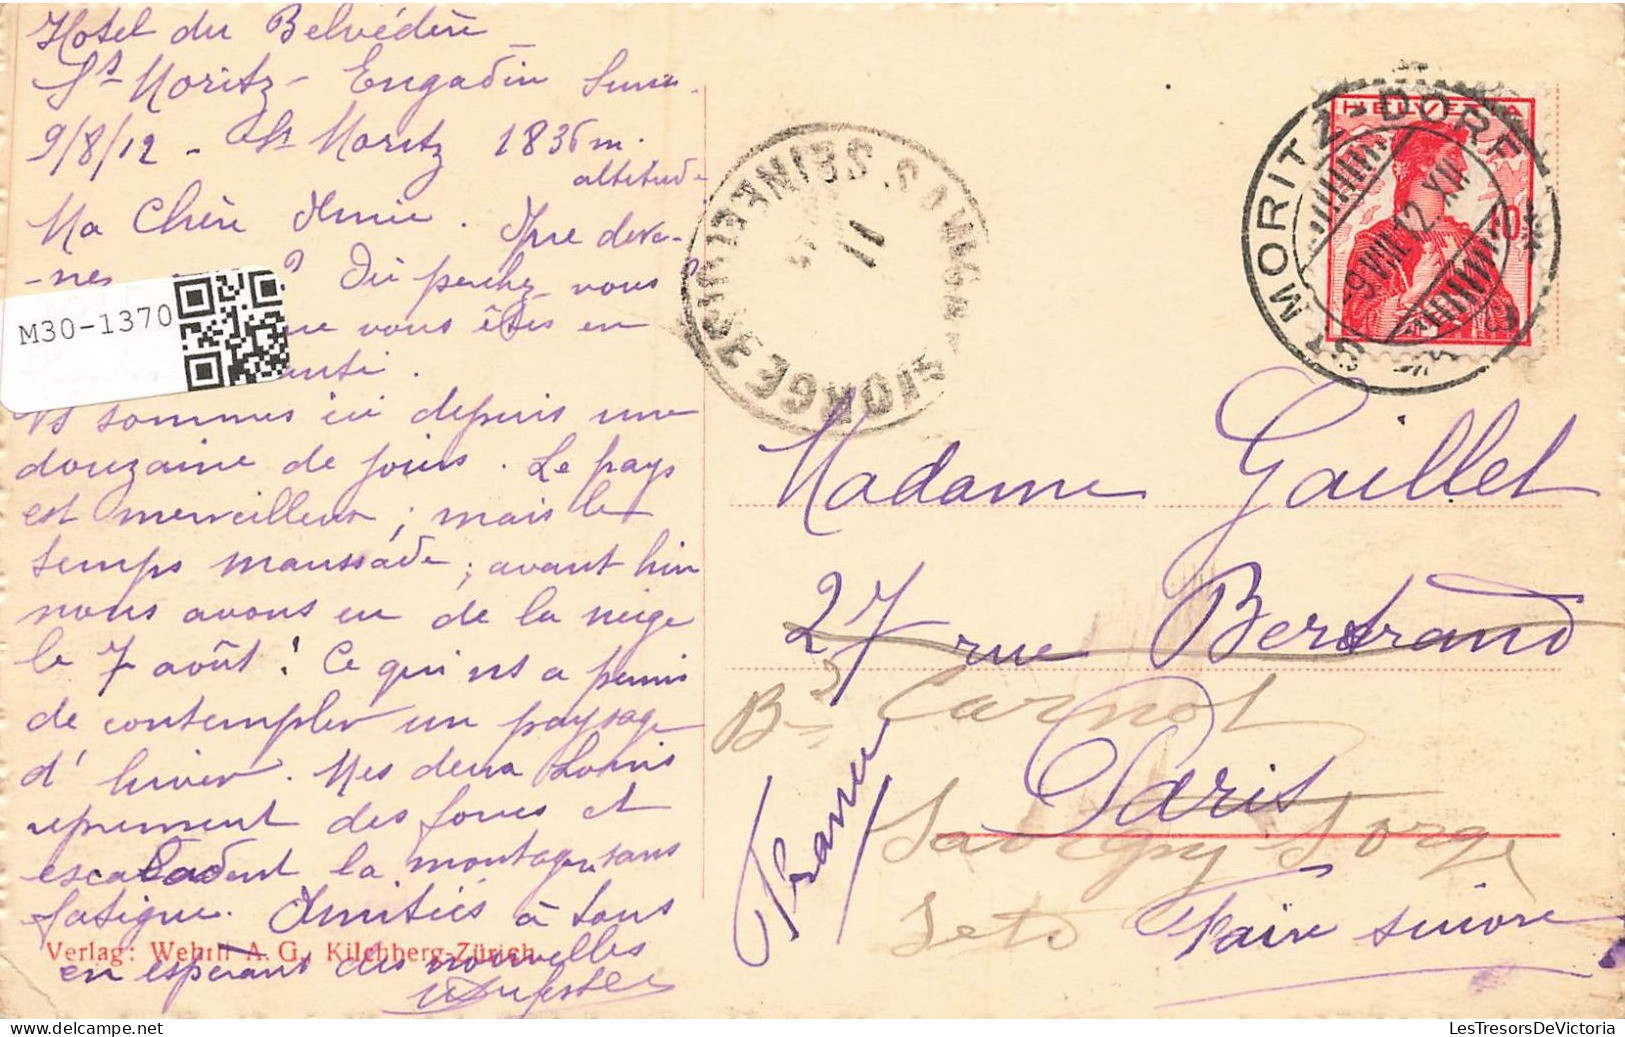 Hotel du Belvédère
St Moritz - Engadin Suisse.
9/8/12 - St Moritz 1836 m.
altitude
Ma Chère Amie. Que deve-
-nez ? Où perchez vous?
que vous êtes en
santé.
Ns sommes ici depuis une
douzaine de jours. Le pays
est merveilleux; mais le
temps maussade; avant hier
nous avons eu de la neige
le 7 août! Ce qui ns a permis
de contempler un paysage
d'hiver. Mes deux Louis
reprennent des forces et
escaladent la montagne, sans
fatigue. Amitiés à tous
en espérant des nouvelles
Verlag: Wehrli A.G., Kilchberg-Zürich
M30-1370
HELVETIA
10
ST MORITZ-DORF
-9.VIII.12.XII
SAVIGNY S. ORGE SEINE-ET-OISE
11
Madame Gaillet
27 rue Bertrand
Bd Carnot
Paris
Savigny s Orge
S et O
France
Faire suivre
LesTresorsDeVictoria
www.delcampe.net